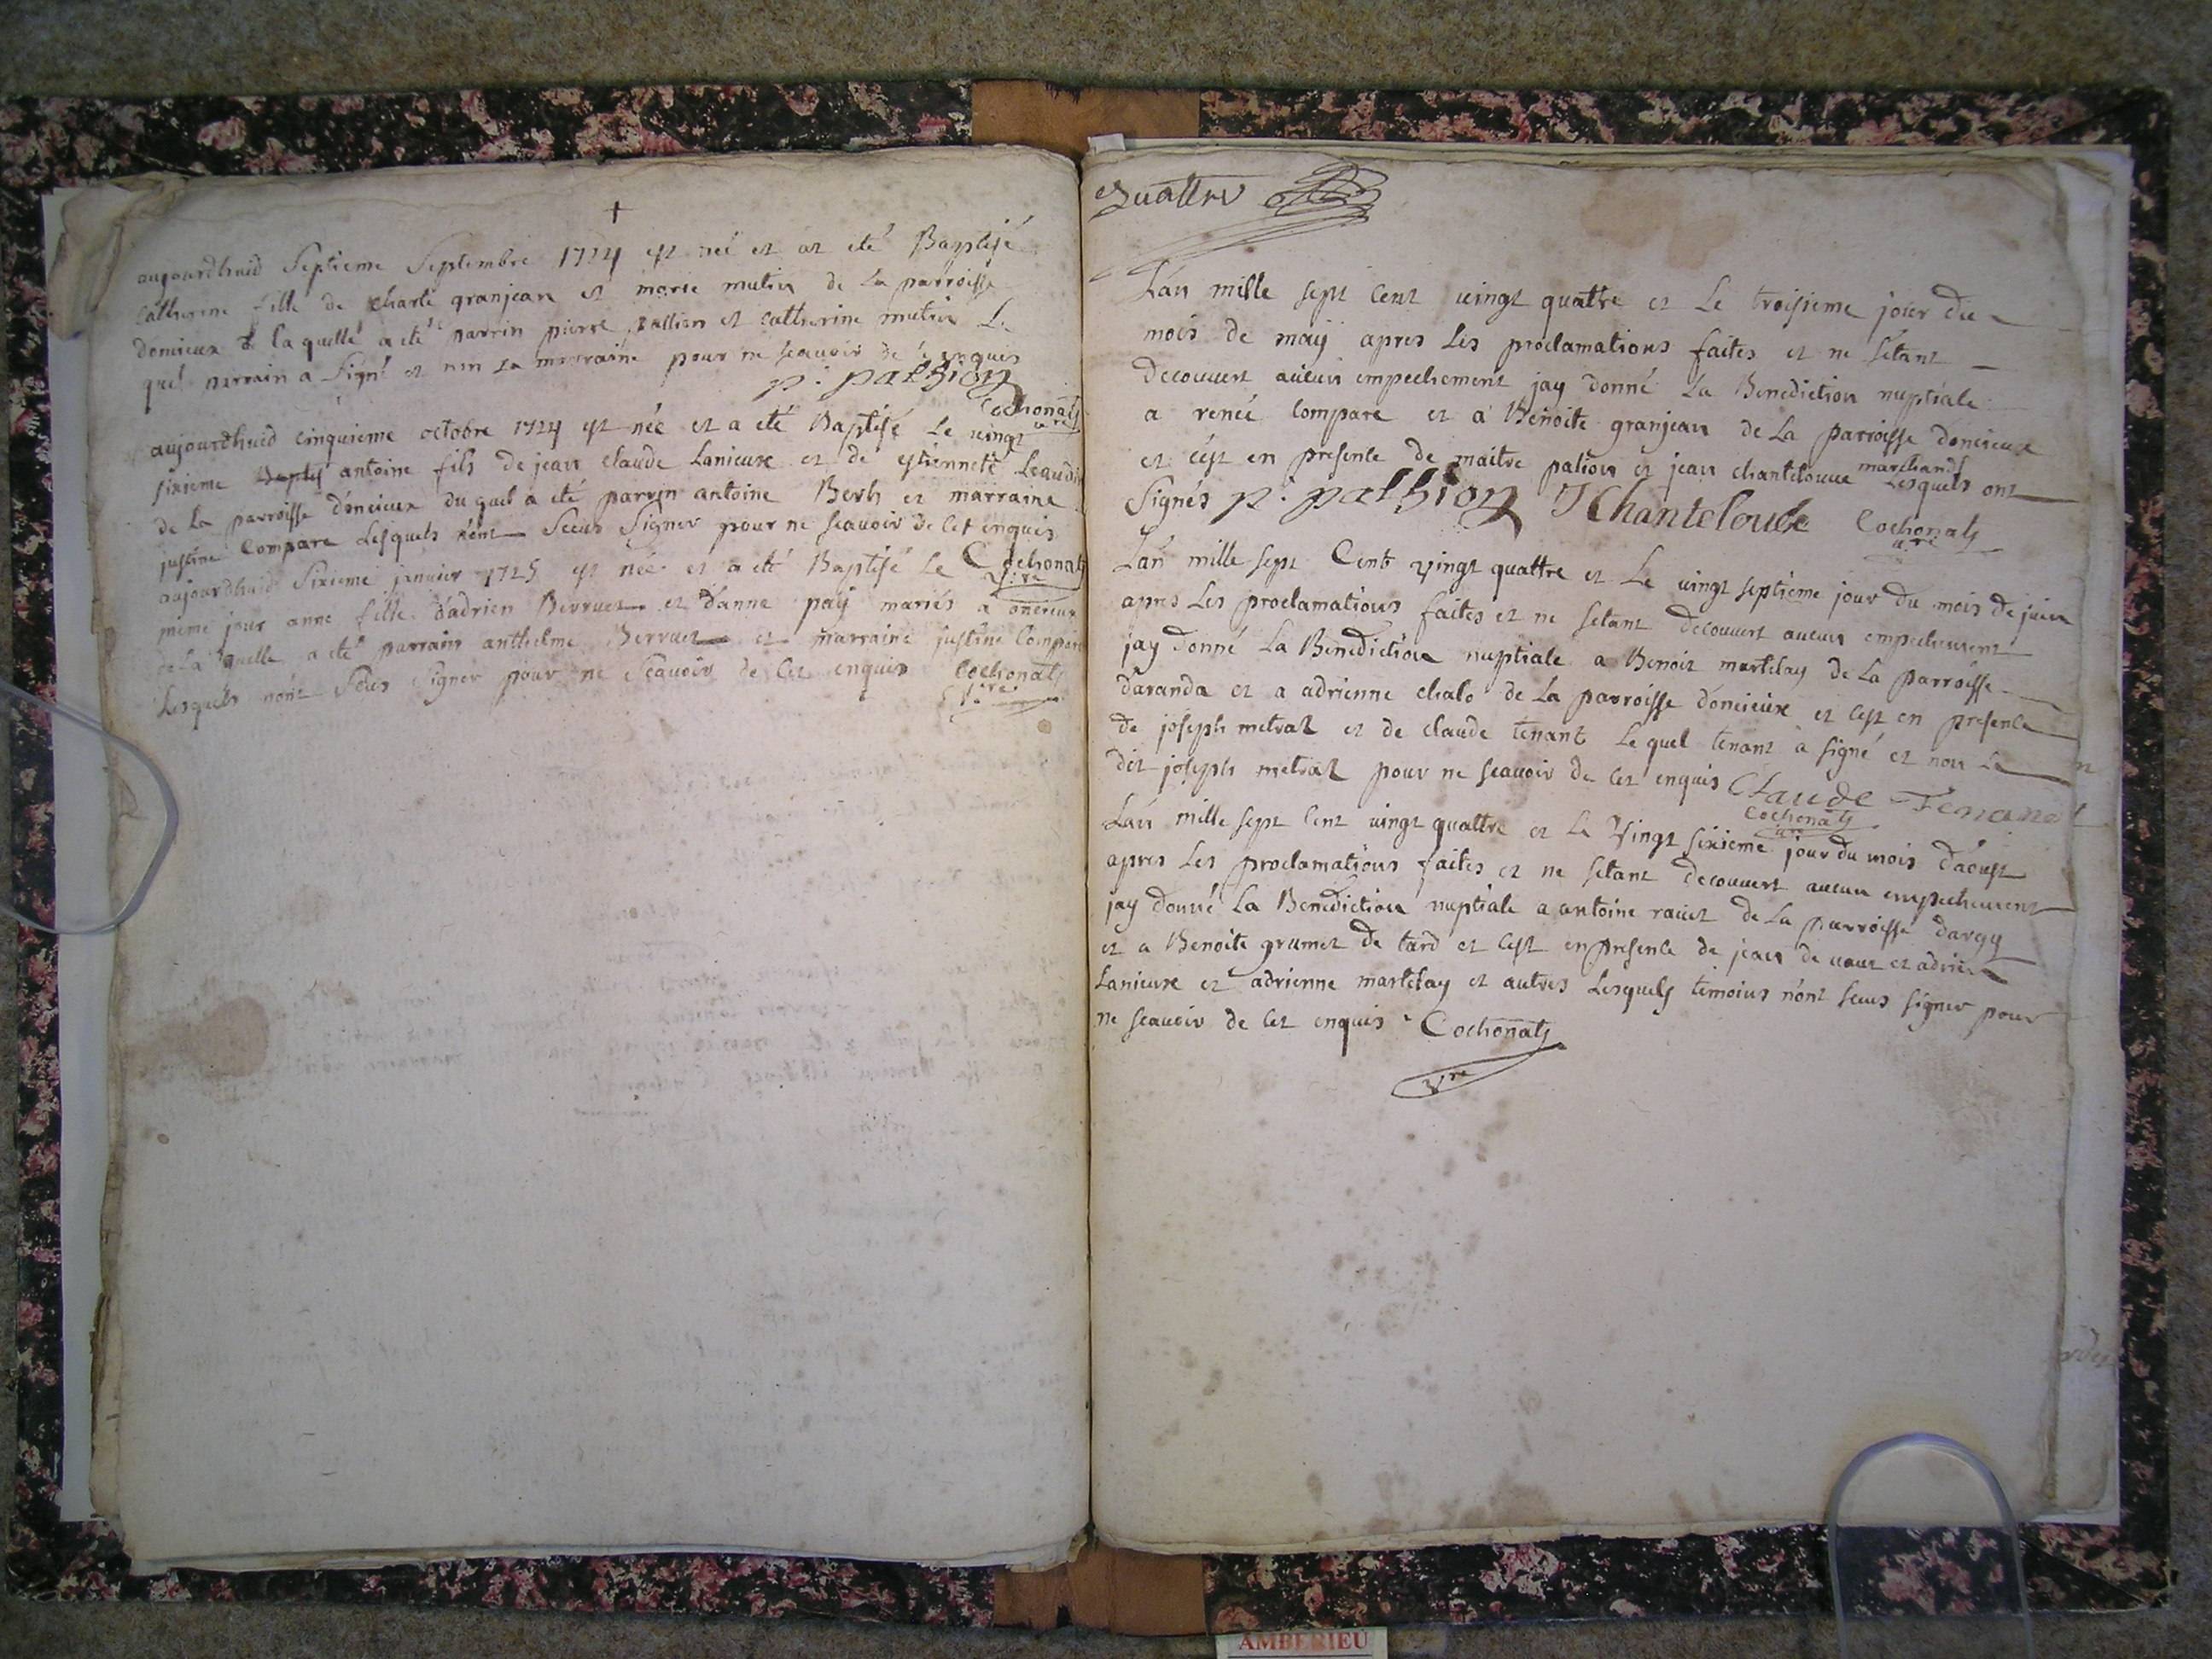 +
aujourdhuid Septieme Septembre 1724 est née et at eté Baptisé
Catherine fille de Charle granjean et marie mutin de La parroisse
doncieux de la quelle a eté parrin pierre pallion et catherine mutin Le
quel parrain a Signé et non La marraine pour ne scauoir de ce enquis
p. pathion
Cochonats
ure
aujourdhuid cinquieme octobre 1724 est née et a eté Baptisé Le vingt
sixieme antoine fils de jean claude Lanieux et de estiennete
de La parroisse doncieux du quel a eté parrin antoine Berth et marraine
justine Compare Lesquels nont Sceus Signer pour ne scauoir de Cet enquis
Cochonats
Vire
aujourdhuid Sixieme janvier 1725 est née et a eté Baptisé Le
meme jour anne fille dadrien Berruet et danne pay mariés a oncieux
de La quelle a eté parrain anthelme Berruet et marraine justine Compare
Lesquels nont Sceus Signer pour ne Scauoir de Cet enquis Cochonats
Vire
Quattre
Lan mille sept Cent vingt quattre et Le troisieme jour du
mois de may apres Les proclamations faites et ne setant
decouvert aucun empechement jay donné La Benediction nuptiale
a renée Compare et a Benoite granjean de La parroisse doncieux
et cest en presence de maitre palion et jean chantelouue marchands Lesquels ont
Signés p. pathion J Chantelouve Cochonats
ure
Lan mille sept Cent vingt quattre et Le vingt septieme jour du mois de juin
apres Les proclamations faites et ne setant decouvert aucun empechement
jay donné La Benediction nuptiale a Benoit martelay de La parroisse
daranda et a adrienne chalo de La parroisse doncieux et cest en presence
de joseph metral et de claude tenant Le quel tenant a signé et non Le
dit joseph metral pour ne scauoir de Cet enquis Claude Tenant
Cochonats
ure
Lan mille sept Cent vingt quattre et Le Vingt sixieme jour du mois daoust
apres Les proclamations faites et ne setant decouvert aucun empechement
jay donné La Benediction nuptiale a antoine de La parroisse dargy
et a Benoite grumet de tard et cest en presence de jean de vaux et adrien
Lanieux et adrienne martelay et autres Lesquels temoins nont sceus signer pour
ne scauoir de Cet enquis Cochonats
Vre
AMBERIEU